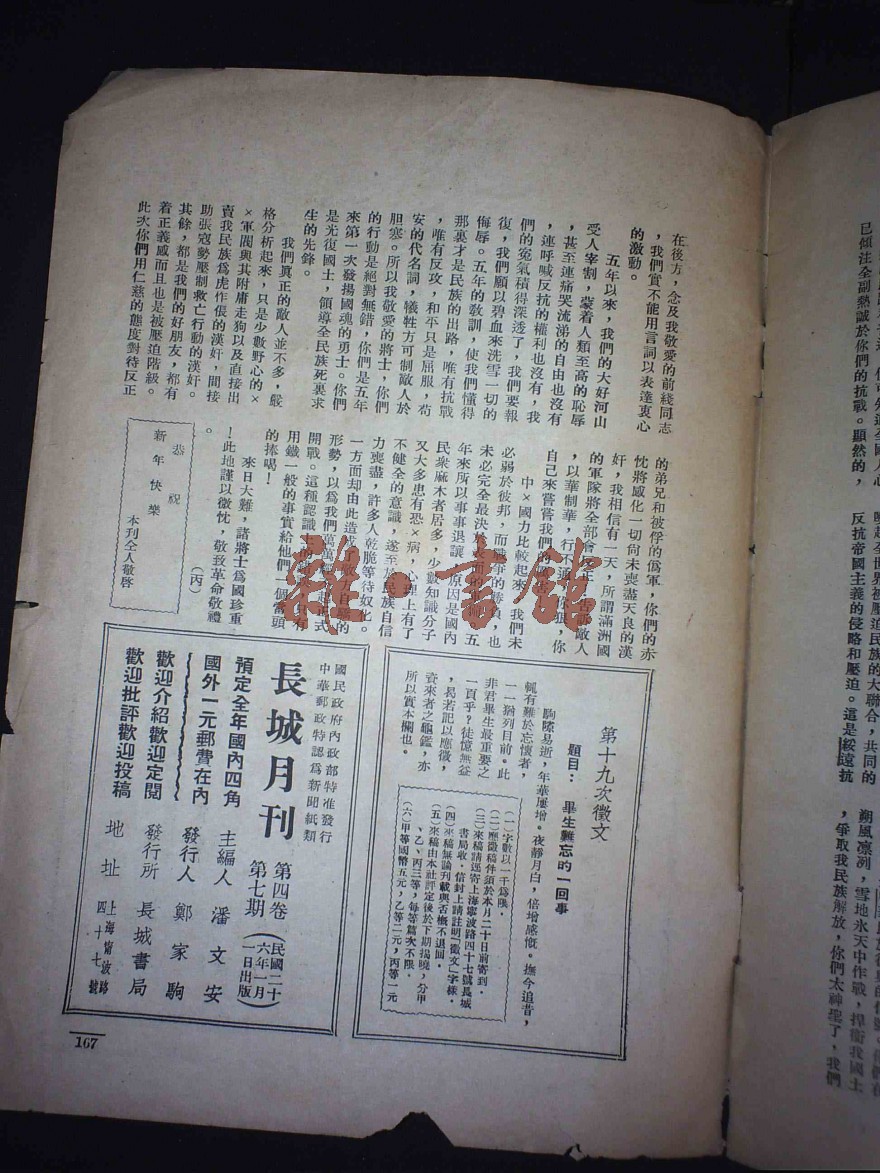 在後方，念及我敬愛的前綫同志
，我們實不能用言詞以表達衷心
的激動。
五年以來，我們的大好河山
受人宰割，蒙着人類至高的恥辱
，甚至連痛哭流涕的自由也沒有
，連呼喊反抗的權利也沒有，我
們的寃氣積得深透了，我們要報
復，我們願以碧血來洗雪一切的
侮辱。五年的教訓，使我們懂得
那裏才是民族的出路，唯有抗戰
，唯有反攻，和平只是屈服，苟
安的代名詞，犧牲方可制敵人於
胆寒。所以我敬愛的將士，你們
的行動是絕對無錯，你們是五年
來第一次發揚國魂的勇士。你們
是光復國士，領導全民族死裏求
生的先鋒。
我們眞正的敵人並不多，嚴
格分析起來，只是少數野心的×
×軍閥與其附庸走狗以及直接出
賣我民族爲虎作倀的漢奸，間接
助張寇勢壓制救亡行動的漢奸。
其餘，都是我們的好朋友，都有
着正義感而且也是被壓迫階級。
此次你們用仁慈的態度對待反正
的弟兄和被俘的僞軍，你們的赤
忱將感化一切尙未喪盡天良的漢
奸，我相信有一天，所謂滿洲國
的軍隊將全部會反正，告訴敵人
，以華制華，行不通，你狠，你
自己來嘗嘗我們的
中×國力比較起來，我們未
必弱於彼邦，而戰爭的勝負，也
未必完全最決於表面的　五
年來所以事事退讓　原因是國內
民衆麻木者居多，少數知識分子
又大多患有恐×病，心理上有了
不健全的意識，遂至於民族自信
力喪盡，許多人乾脆等待奴化。
一方面却由此造成了敵方自驕的
形勢，以爲我們萬萬　正式
開戰。這種認識上的　只有
用鐵一般的事實給他們一個當頭
的捧喝！
來日大難，諸將士爲國珍重
！此地謹以微忱，敬致革命敬禮
。　（丙）
恭祝
新年快樂
本刊仝人敬啓
第十九次徵文
題目：　畢生難忘的一回事
駒隙易逝，年華屢增。夜靜月白，倍增感慨。撫今追昔，
輒有難於忘懷者，
一一猶列目前。此
非君畢生最重要之
一頁乎？徒憶無益
，曷若記以應徵，
資來者之龜鑑，亦
所以實本欄也。
（一）字數以一千爲限。
（二）應徵稿件須於本月二十日前寄到。
（三）來稿請逕寄上海寗波路四十七號長城
書局收。信封上請註明「徵文」字樣。
（四）來稿無論刊載與否概不退回。
（五）來稿由本社評定後於下期揭曉，分甲
、乙、丙三等，每等篇數不限。
（六）甲等國幣五元，乙等二元，丙等一元
國民政府內政部特准發行
中華郵政特認爲新聞紙類
長城月刊
第四卷
第七期
（民國二十
六年一月
一日出版）
預定全年國內四角
國外一元郵費在內
歡迎介紹歡迎定閱
歡迎批評歡迎投稿
主編人　潘文安
發行人　鄭家駒
發行所　長城書局
地址　上海甯波路
四十七號
167
雜·書館